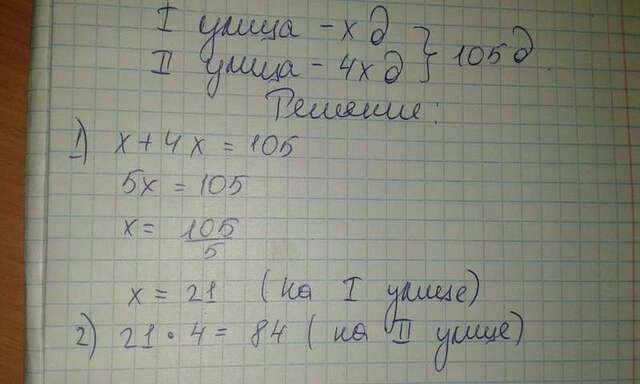 I улица - x д } 105 д
II улица - 4x д
Решение:
1) x + 4x = 105
5x = 105
x = 105/5
x = 21 (на I улице)
2) 21 · 4 = 84 (на II улице)